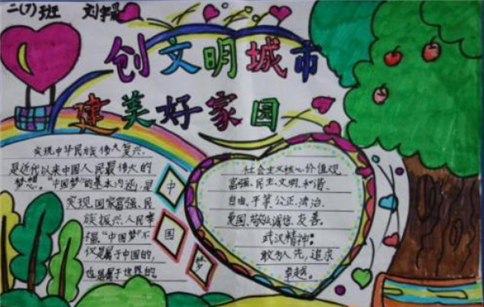 二(7)班 刘宇
创文明城市
建美好家园
实现中华民族伟大复兴,
是近代以来中国人民最伟大的
梦想。"中国梦"的基本内涵是
实现国家富强、民
族振兴、人民幸
福"中国梦"不
仅是属于中国的,
也是属于世界的
中
国
梦
社会主义核心价值观
富强、民主、文明、和谐、
自由、平等、公正、法治、
爱国、敬业、诚信、友善。
武汉精神:
敢为人先,追求
卓越。